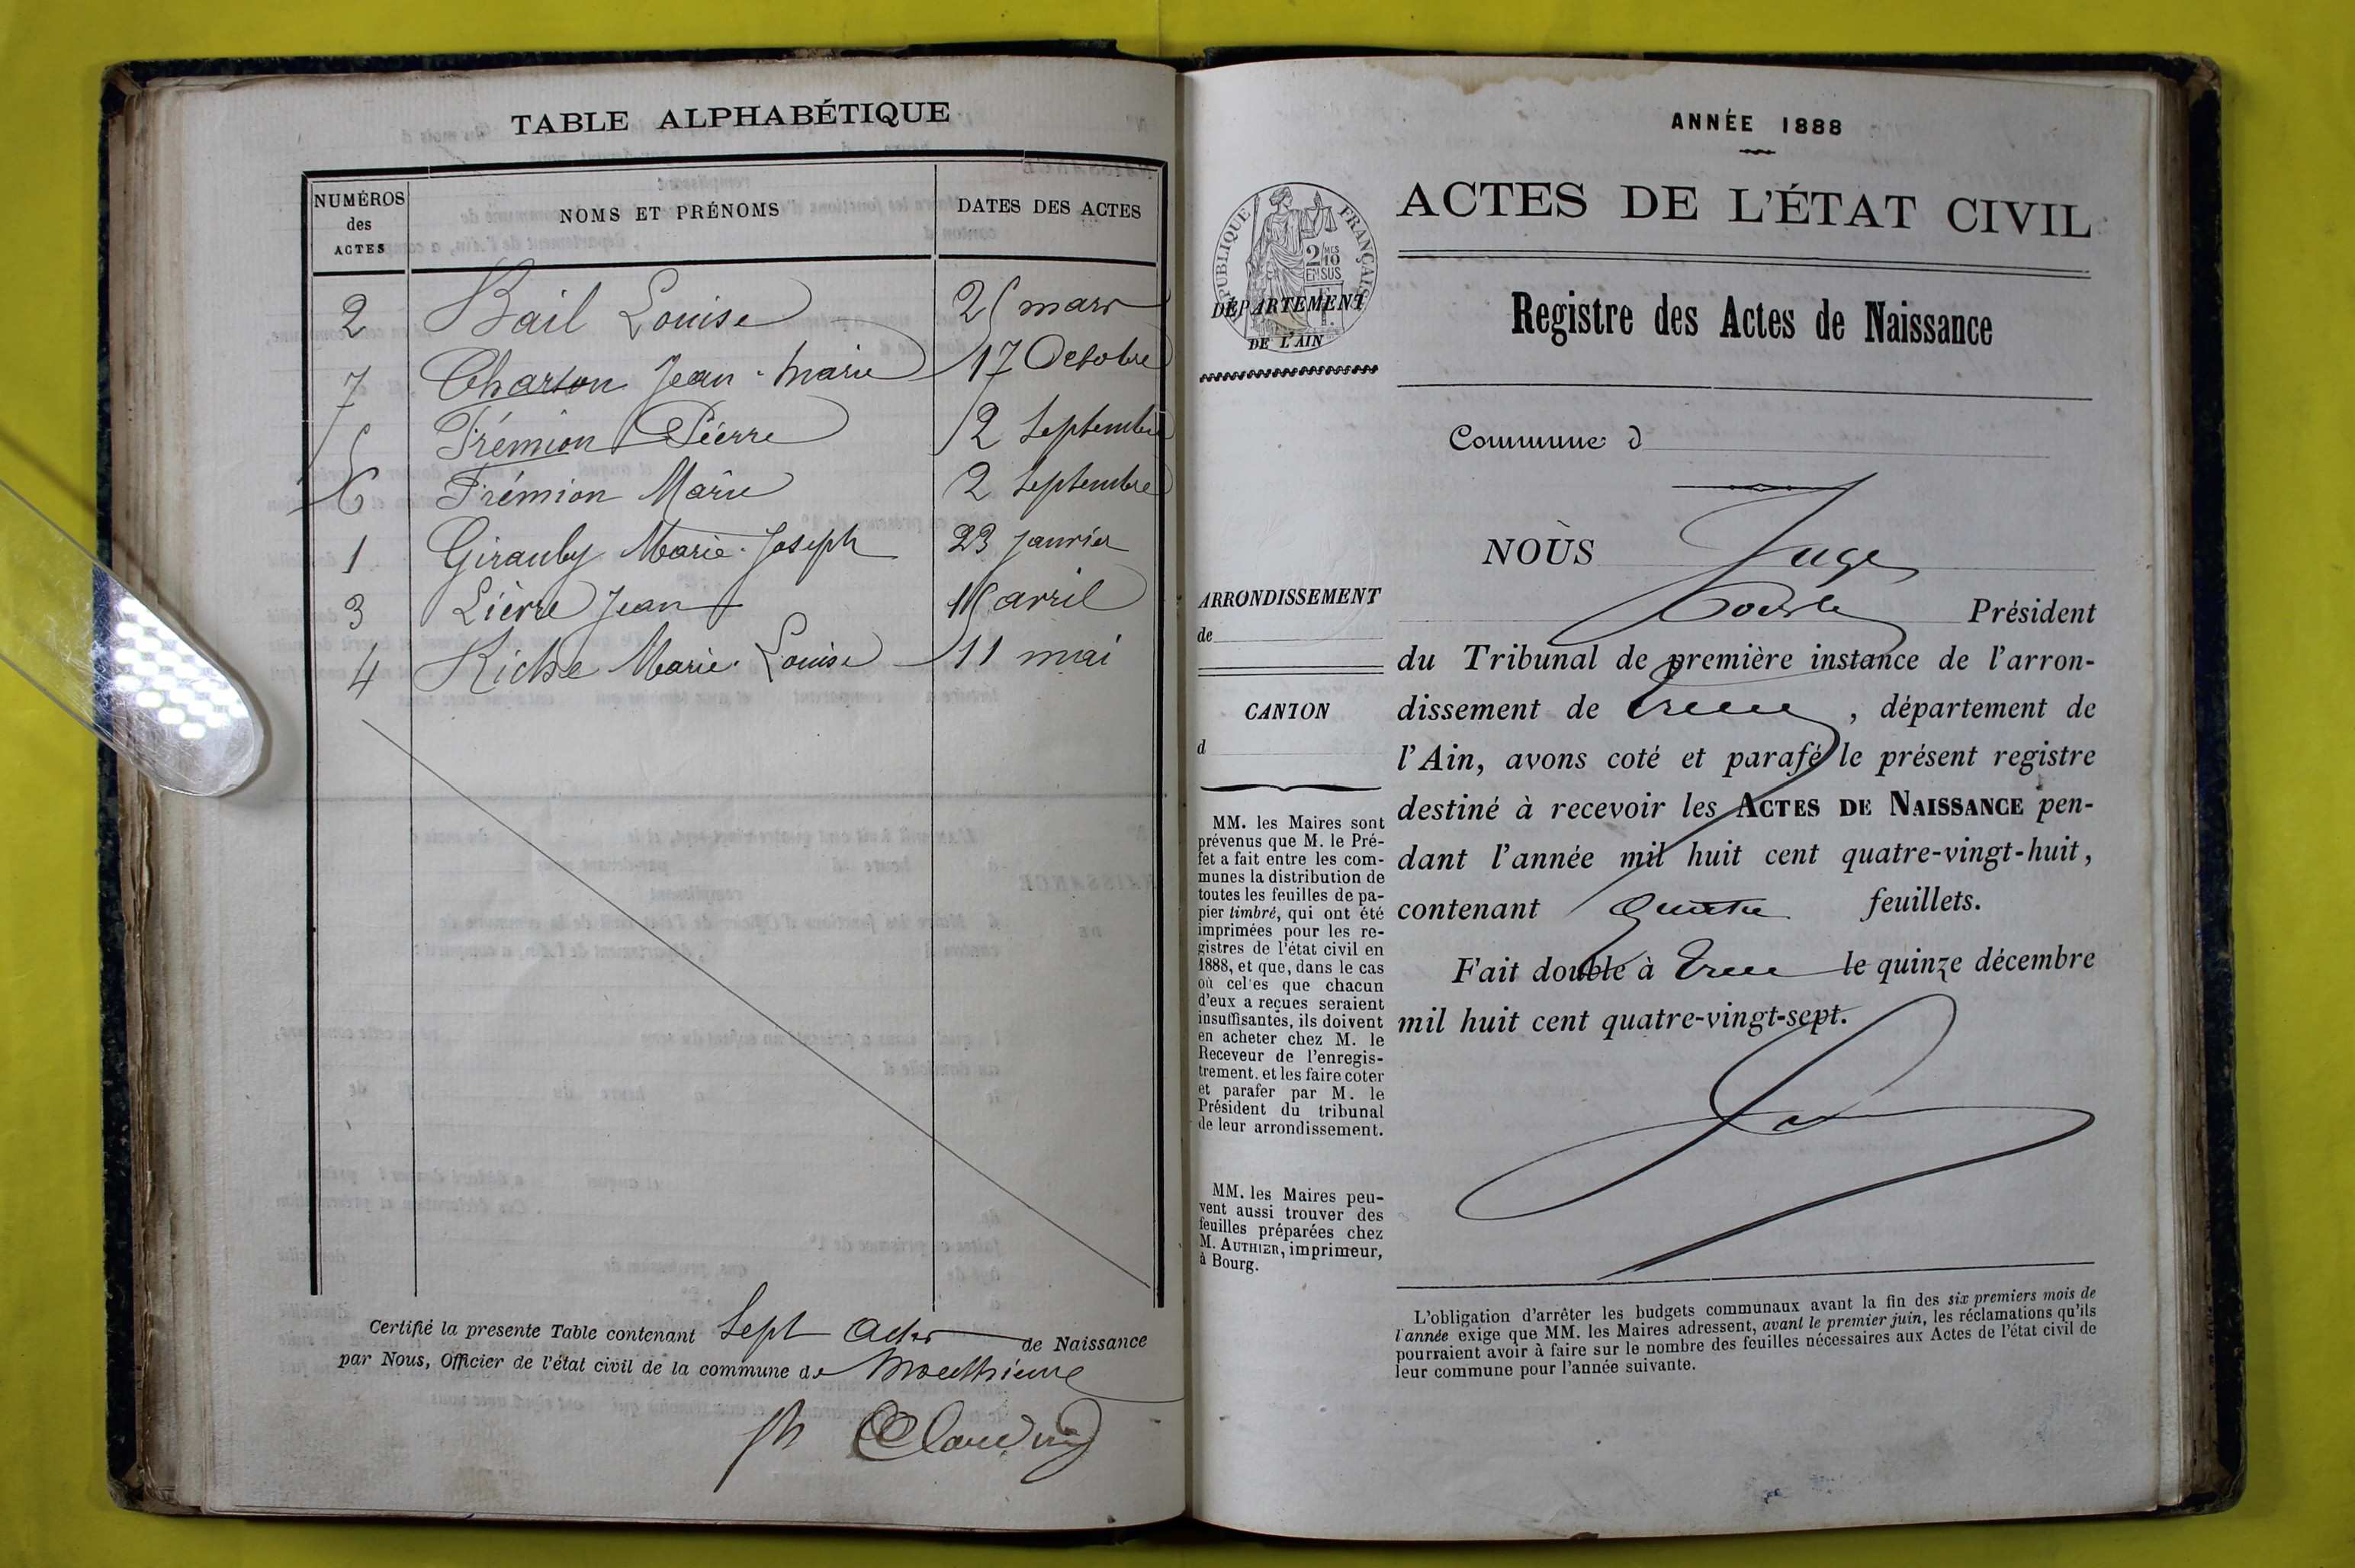 TABLE ALPHABÉTIQUE
NUMÉROS des ACTES
NOMS ET PRÉNOMS
DATES DES ACTES
2 Bail Louise 25 mars
7 Charton Jean-Marie 17 Octobre
5 Frémion Pierre 2 Septembre
6 Frémion Marie 2 Septembre
1 Girauby Marie-Joseph 23 janvier
3 Lièvre Jean 15 avril
4 Riche Marie-Louise 11 mai
Certifié la presente Table contenant Sept Actes de Naissance
par Nous, Officier de l'état civil de la commune de Monthieux
ANNÉE 1888
ACTES DE L'ÉTAT CIVIL
RÉPUBLIQUE FRANÇAISE
2/10 MES
EN SUS
DÉPARTEMENT
DE L'AIN
Registre des Actes de Naissance
Commune d
NOUS Juge
Président
du Tribunal de première instance de l'arron-
dissement de Trévoux, département de
l'Ain, avons coté et parafé le présent registre
destiné à recevoir les ACTES DE NAISSANCE pen-
dant l'année mil huit cent quatre-vingt-huit,
contenant quatre feuillets.
Fait double à Trévoux le quinze décembre
mil huit cent quatre-vingt-sept.
ARRONDISSEMENT
de
CANTON
d
MM. les Maires sont
prévenus que M. le Pré-
fet a fait entre les com-
munes la distribution de
toutes les feuilles de pa-
pier timbré, qui ont été
imprimées pour les re-
gistres de l'état civil en
1888, et que, dans le cas
où celles que chacun
d'eux a reçues seraient
insuffisantes, ils doivent
en acheter chez M. le
Receveur de l'enregis-
trement. et les faire coter
et parafer par M. le
Président du tribunal
de leur arrondissement.
MM. les Maires peu-
vent aussi trouver des
feuilles préparées chez
M. AUTHIER, imprimeur,
à Bourg.
L'obligation d'arrêter les budgets communaux avant la fin des six premiers mois de
l'année exige que MM. les Maires adressent, avant le premier juin, les réclamations qu'ils
pourraient avoir à faire sur le nombre des feuilles nécessaires aux Actes de l'état civil de
leur commune pour l'année suivante.